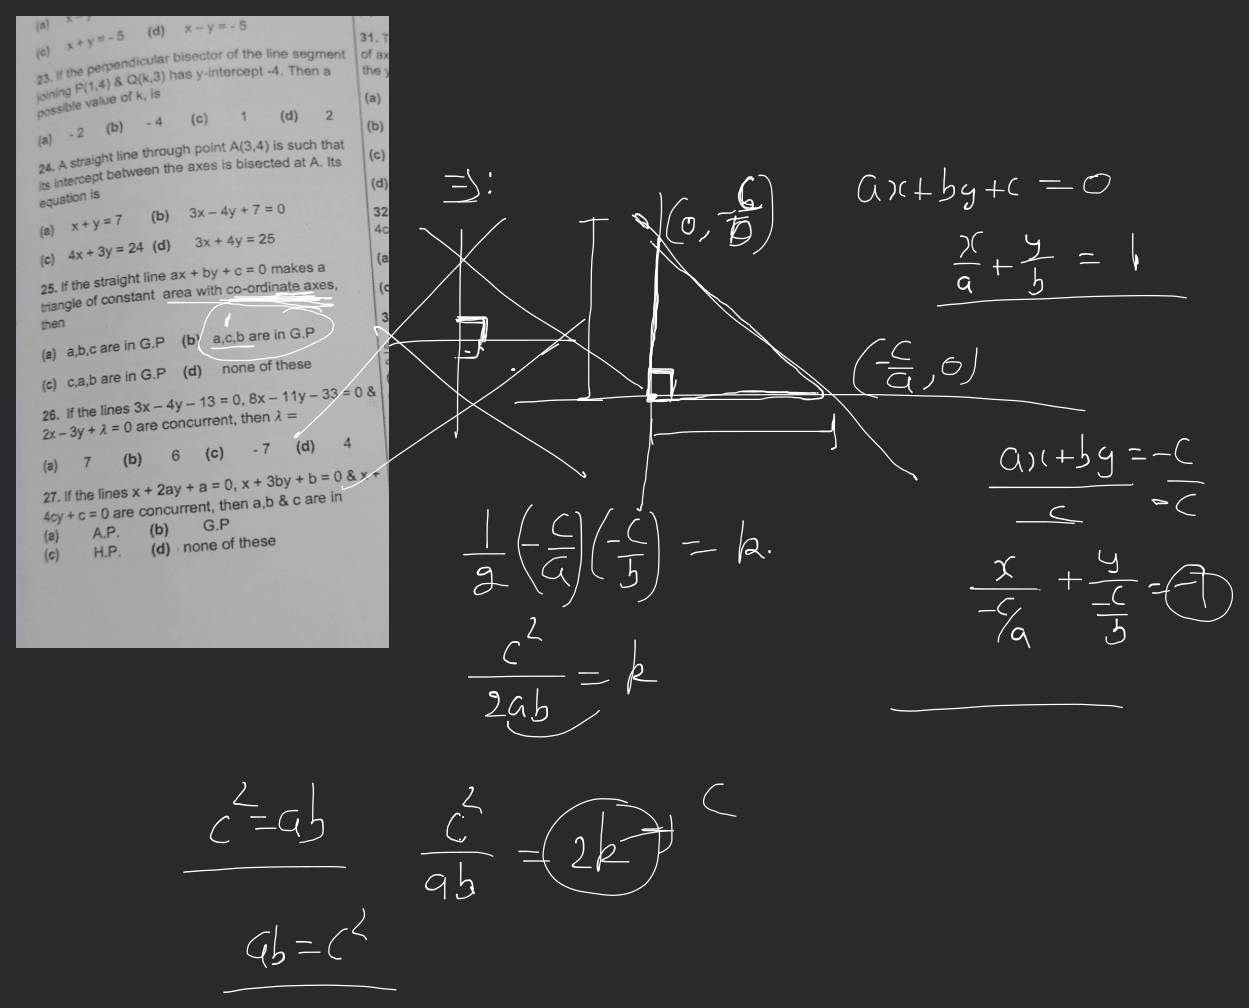 (a) x - y
(c) x + y = - 5 (d) x – y = - 5
23. If the perpendicular bisector of the line segment
joining P(1,4) & Q(k,3) has y-intercept -4. Then a
possible value of k, is
(a) - 2 (b) - 4 (c) 1 (d) 2
24. A straight line through point A(3,4) is such that
its intercept between the axes is bisected at A. Its
equation is
(a) x + y = 7 (b) 3x – 4y + 7 = 0
(c) 4x + 3y = 24 (d) 3x + 4y = 25
25. If the straight line ax + by + c = 0 makes a
triangle of constant area with co-ordinate axes,
then
(a) a,b,c are in G.P (b) a,c,b are in G.P
(c) c,a,b are in G.P (d) none of these
26. If the lines 3x – 4y – 13 = 0, 8x – 11y – 33 = 0 &
2x – 3y + λ = 0 are concurrent, then λ =
(a) 7 (b) 6 (c) - 7 (d) 4
27. If the lines x + 2ay + a = 0, x + 3by + b = 0 & x +
4cy + c = 0 are concurrent, then a,b & c are in
(a) A.P. (b) G.P
(c) H.P. (d) none of these
31. T
of ax
the y
(a)
(b)
(c)
(d)
32
4c
(a
(c
3
(0, -c/b)
(-c/a, 0)
ax+by+c = 0
x/a + y/b = 1
ax+by/c = -c/-c
x/-c/a + y/-c/b = -1
1/2 (-c/a) (-c/b) = k.
c²/2ab = k
c²=ab
c²/ab = 2k → c
ab = c²